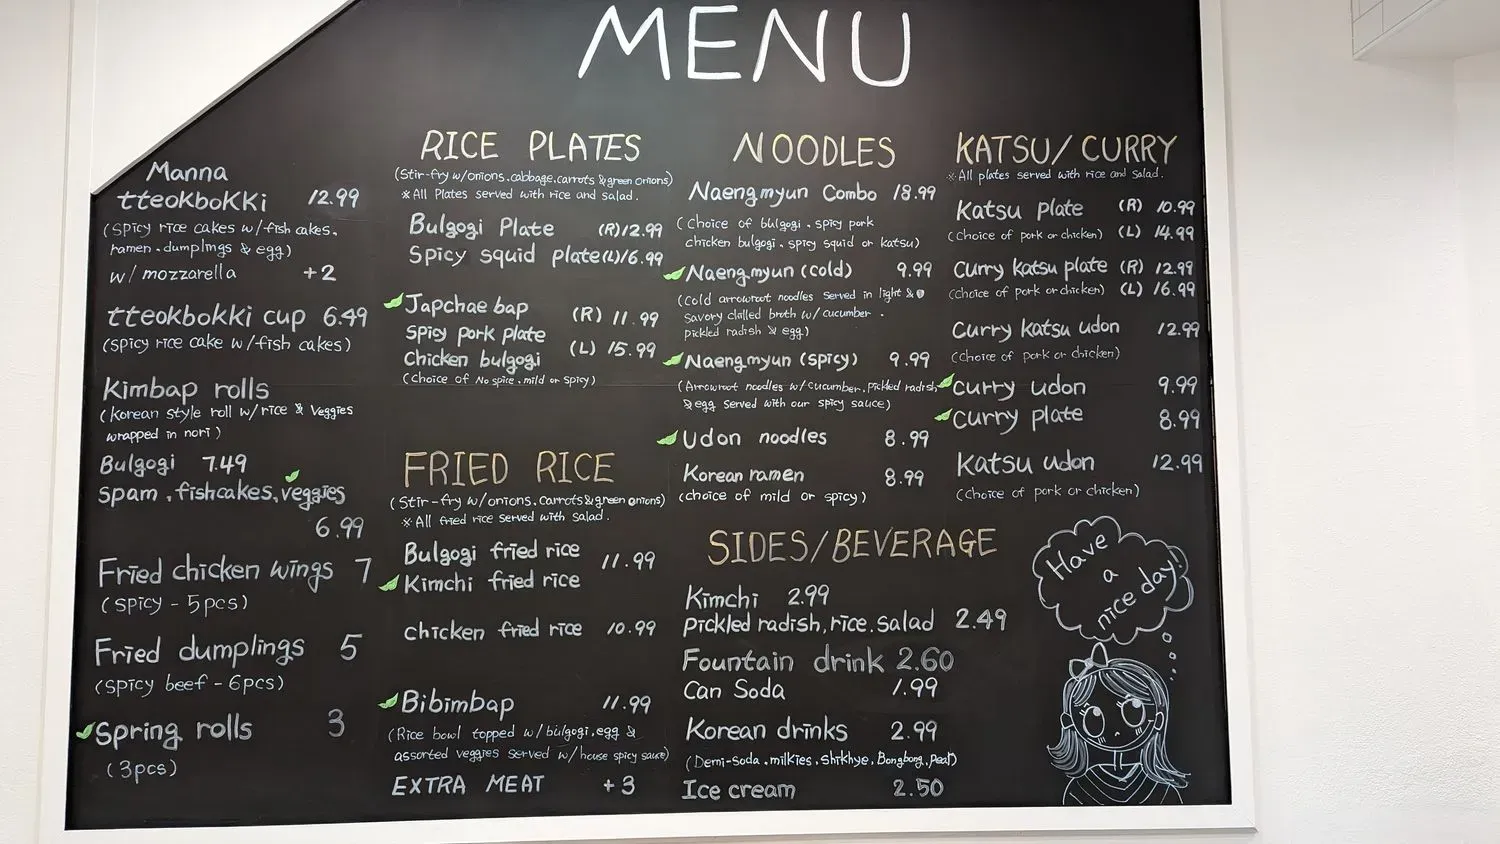 MENU
Manna
tteokbokki 12.99
(spicy rice cakes w/fish cakes,
ramen, dumplings & egg)
w/ mozzarella +2
tteokbokki cup 6.49
(spicy rice cake w/fish cakes)
Kimbap rolls
(Korean style roll w/rice & veggies
wrapped in nori)
Bulgogi 7.49
spam, fishcakes, veggies
6.99
Fried chicken wings 7
(spicy - 5pcs)
Fried dumplings 5
(spicy beef - 6pcs)
Spring rolls 3
(3pcs)
RICE PLATES
(Stir-fry w/onions, cabbage, carrots & green onions)
※All Plates served with rice and salad.
Bulgogi Plate (R)12.99
Spicy squid plate (L)16.99
Japchae bap (R) 11.99
Spicy pork plate
Chicken bulgogi (L) 15.99
(choice of No spice, mild or spicy)
FRIED RICE
(Stir-fry w/onions, carrots & green onions)
※All fried rice served with salad.
Bulgogi fried rice 11.99
Kimchi fried rice
chicken fried rice 10.99
Bibimbap 11.99
(Rice bowl topped w/bulgogi, egg &
assorted veggies served w/house spicy sauce)
EXTRA MEAT +3
NOODLES
Naengmyun Combo 18.99
(choice of bulgogi, spicy pork
chicken bulgogi, spicy squid or katsu)
Naengmyun (cold) 9.99
(cold arrowroot noodles served in light &
savory chilled broth w/ cucumber,
pickled radish & egg)
Naengmyun (spicy) 9.99
(Arrowroot noodles w/cucumber, pickled radish
& egg served with our spicy sauce)
Udon noodles 8.99
Korean ramen 8.99
(choice of mild or spicy)
SIDES/BEVERAGE
Kimchi 2.99
pickled radish, rice, salad 2.49
Fountain drink 2.60
Can Soda 1.99
Korean drinks 2.99
(Demi-soda, milkies, shikhye, Bongbong, Pear)
Ice cream 2.50
KATSU/CURRY
※All plates served with rice and salad.
Katsu plate (R) 10.99
(choice of pork or chicken) (L) 14.99
Curry katsu plate (R) 12.99
(choice of pork or chicken) (L) 16.99
Curry katsu udon 12.99
(choice of pork or chicken)
Curry udon 9.99
Curry plate 8.99
Katsu udon 12.99
(choice of pork or chicken)
Have
a
nice day!